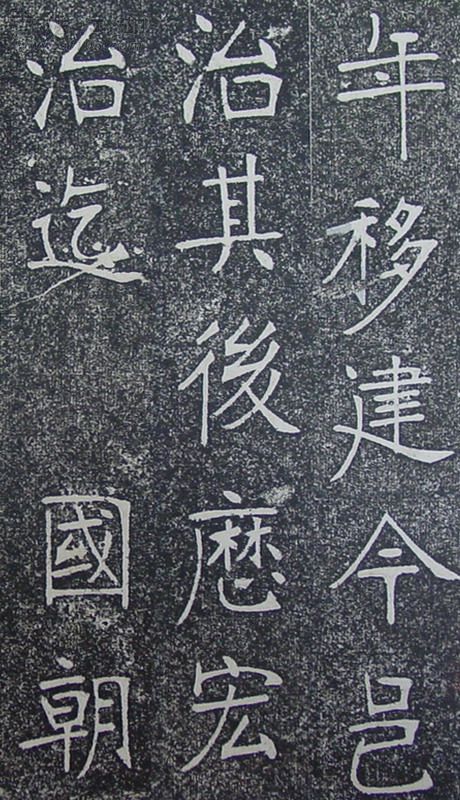 年移建今邑
治其後歴宏
治迄　國朝